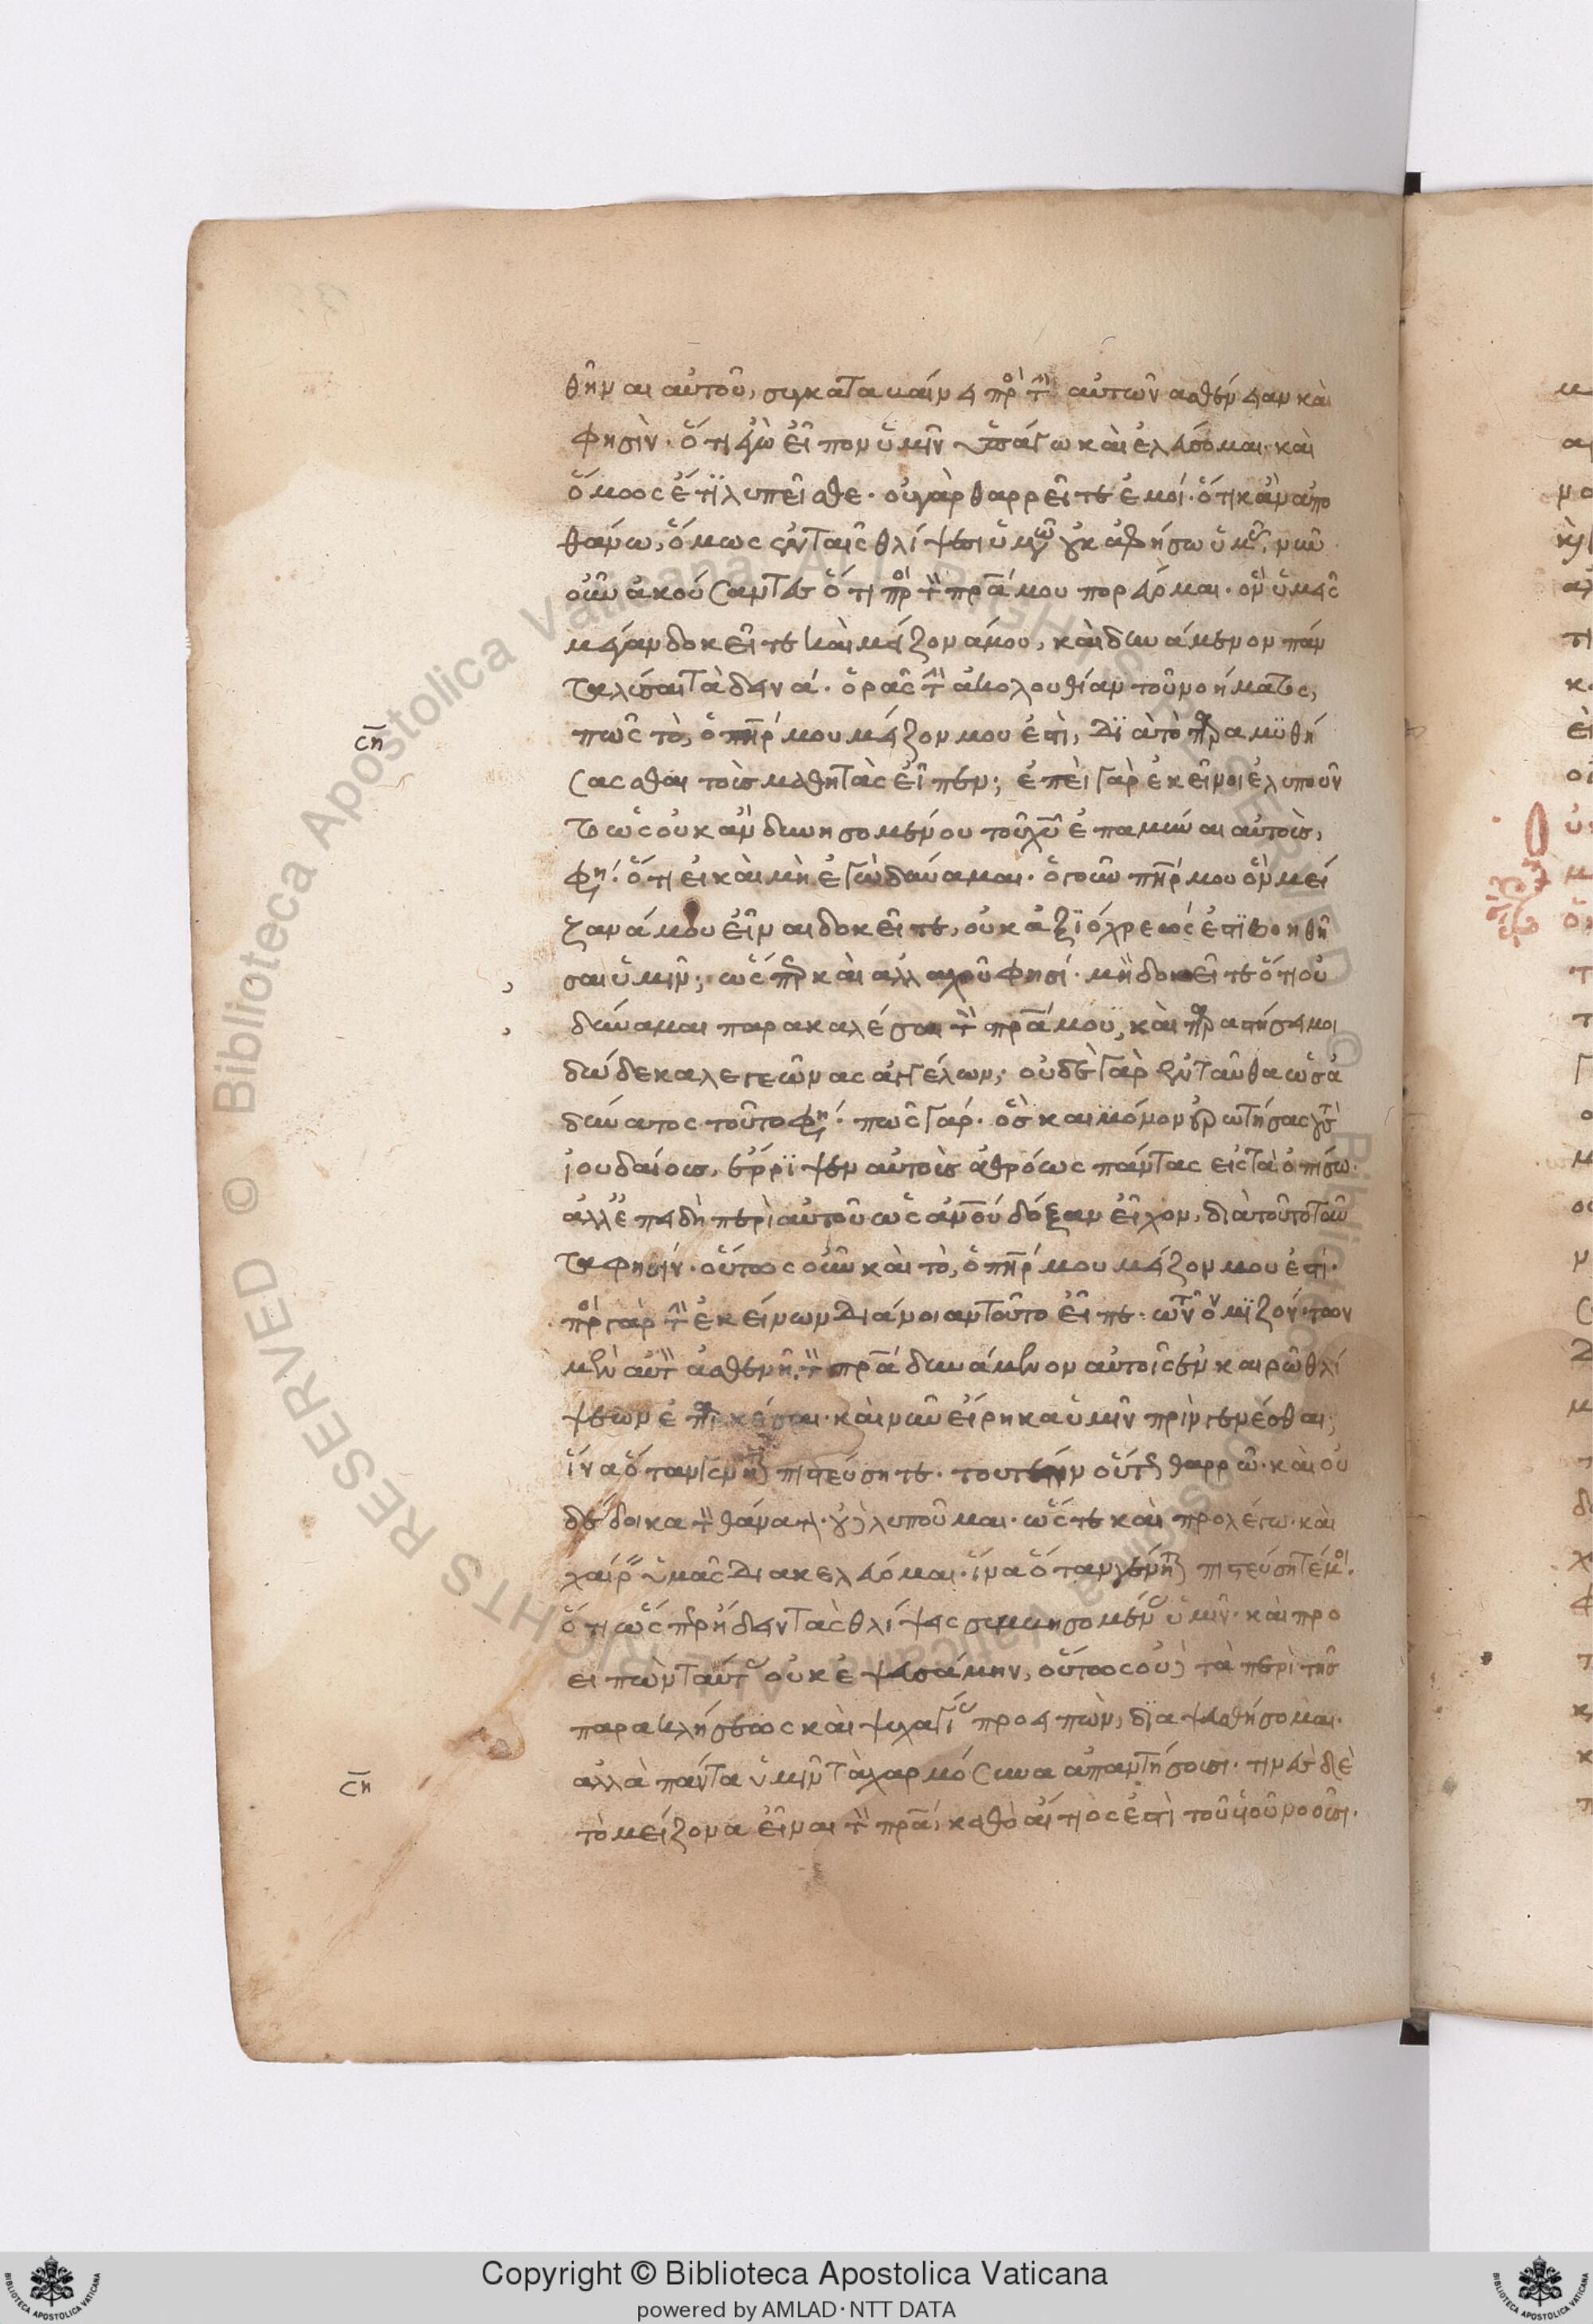 θῆναι αὐτοῦ, συγκαταβαίνει πρὸς τὴν αὐτῶν ἀσθένειαν καὶ
φησὶν· ὅτι ἐγὼ εἶπον ὑμῖν ὑπάγω καὶ ἐλεύσομαι· καὶ
ὅμως ἔτι λυπεῖσθε· οὐ γὰρ θαρρεῖτε ἐμοί· ὅτι κἂν ἀπο
θάνω, ὅμως ἐν ταῖς θλίψεσιν ὑμῶν οὐκ ἀφήσω ὑμᾶς· νῦν
οὖν ἀκούσαντες ὅτι πρὸς τὸν πρα μου πορεύομαι· ὃν ὑμεῖς
μέγαν δοκεῖτε καὶ μείζονά μου, καὶ δυνάμενον πάν
τα λῦσαι τὰ δεινά· ὁρᾷς τὴν ἀκολουθίαν τοῦ νοήματος,
ση
πῶς τὸ, ὁ πηρ μου μείζον μου ἐστὶ, διὰ τὸ παραμυθή
σασθαι τοὺς μαθητὰς εἶπεν; ἐπεὶ γὰρ ἐκεῖνοι ἐλυποῦν
το ὡς οὐκ ἂν δυνησομένου τοῦ χυ ἐπαμῦναι αὐτοῖς,
φησίν· ὅτι εἰ καὶ μὴ ἐγὼ δύναμαι· ὁ γοῦν πηρ μου ὃν μεί
ζονά μου εἶναι δοκεῖτε, οὐκ ἀξιόχρεώς ἐστι βοηθῆ
σαι ὑμῖν; ὥσπερ καὶ ἀλλαχοῦ φησί· μὴ δοκεῖτε ὅτι οὐ
δύναμαι παρακαλέσαι τὸν πρα μου, καὶ παραστήσει μοι
δώδεκα λεγεῶνας ἀγγέλων; οὐδὲ γὰρ ἐνταῦθα ὡς ἀ
δύνατος τοῦτο φησίν· πῶς γάρ· ὃς καὶ μόνον ἐρωτήσας τοὺς
ἰουδαίους, ἔρριψεν αὐτοὺς ἀθρόως πάντας εἰς τὰ ὀπίσω·
ἀλλ' ἐπειδὴ περὶ αὐτοῦ ὡς ανου δόξαν εἶχον, διὰ τοῦτο ταῦ
τα φησίν· οὕτως οὖν καὶ τὸ, ὁ πηρ μου μείζον μου ἐστί·
πρὸς γὰρ τὴν ἐκείνων διάνοιαν τοῦτο εἶπε· τῶν νομιζόντων
μὲν αὐτὸν ἀσθενῆ, τὸν πρα δυνάμενον αὐτοῖς ἐν καιρῷ θλί
ψεων ἐπαρκέσαι· καὶ νῦν εἴρηκα ὑμῖν πρὶν γενέσθαι,
ἵνα ὅταν γένηται πιστεύσητε· τουτέστιν οὕτω θαρρῶ· καὶ οὐ
δέδοικα τὸν θάνατον· οὐδὲ λυποῦμαι· ὥστε καὶ προλέγω· καὶ
χαίρειν ὑμᾶς διακελεύομαι· ἵνα ὅταν γένηται πιστεύσητέ μοι·
ὅτι ὥσπερ ᾔδειν τὰς θλίψεις συμβησομένας ὑμῖν· καὶ προ
ειπὼν ταύτας οὐκ ἐψευσάμην, οὕτως οὐδὲ τὰ περὶ τῆς
παρακλήσεως καὶ ψυχαγωγίας προειπὼν, διαψευσθήσομαι·
ση
ἀλλὰ πάντα ὑμῖν τὰ χαρμόσυνα ἀπαντήσουσι· τινὲς δὲ
τὸ μείζονα εἶναι τὸν πρα, καθὸ αἴτιος ἐστὶ τοῦ υἱοῦ νοοῦσι·
Copyright © Biblioteca Apostolica Vaticana
powered by AMLAD·NTT DATA